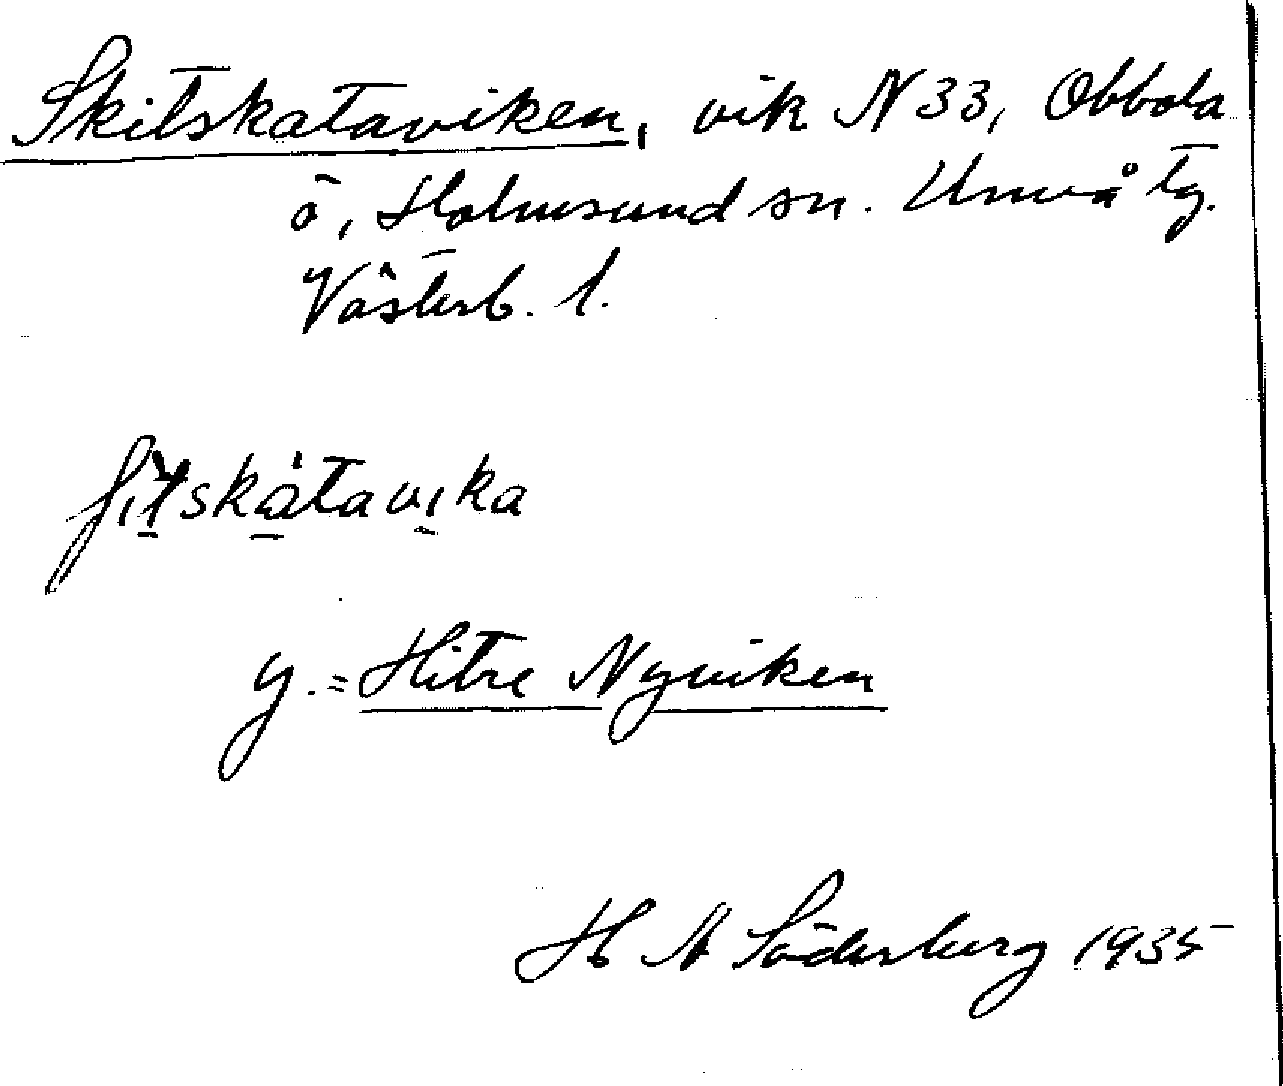 Skitskataviken, vik N 33, Obbola
ö, Holmsund sn. Umeå tg.
Västerb. l.
ʃitskàtavika
y. = Hitre Nyviken
H A Söderberg 1935